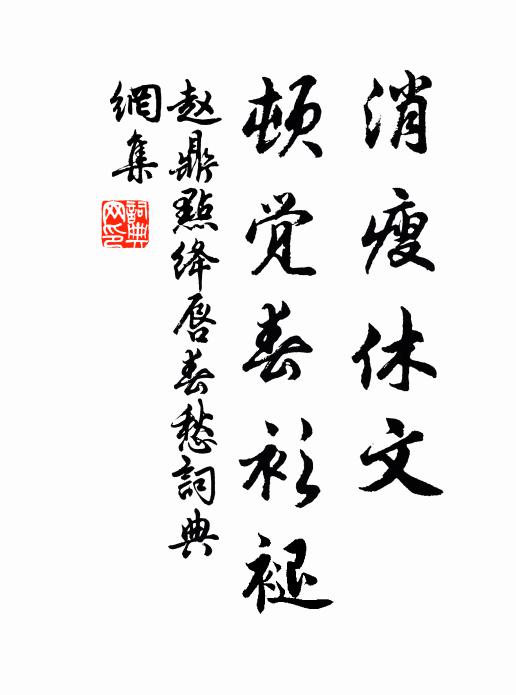 消瘦休文
顿觉春衫褪
赵鼎點绛唇春愁詞典
網集
詞典网印